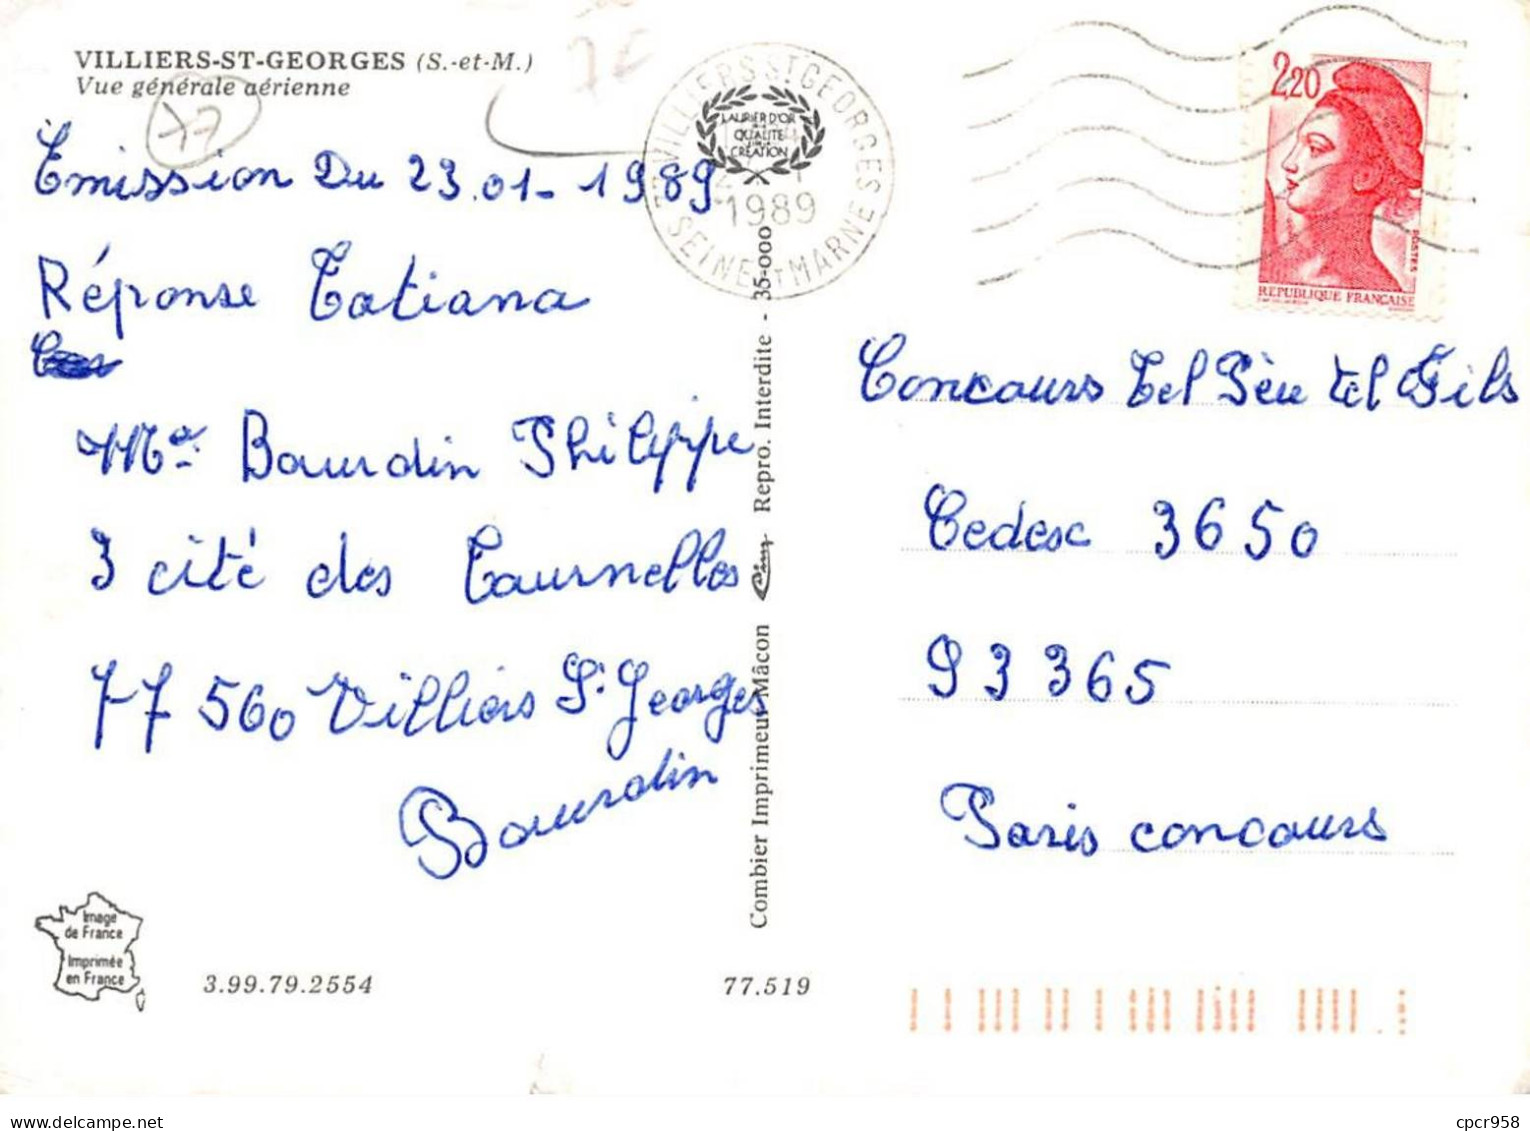 VILLIERS-ST-GEORGES (S.-et-M.)
Vue générale aérienne
77
Emission Du 23.01-1989
Réponse Tatiana
Mr Bourdin Philippe
3 cité des Tournelles
77560 Villiers St Georges
Bourdin
Image
de France
Imprimée
en France
3.99.79.2554
77.519
Combier Imprimeur Mâcon Repro. Interdite - 35-000
LAURIER D'OR
QUALITÉ
CRÉATION
VILLIERS ST GEORGES
1989
SEINE ET MARNE
2,20
POSTES
REPUBLIQUE FRANÇAISE
Concours Tel Père tel Fils
Cedesc 3650
93365
Paris concours
cpcr958